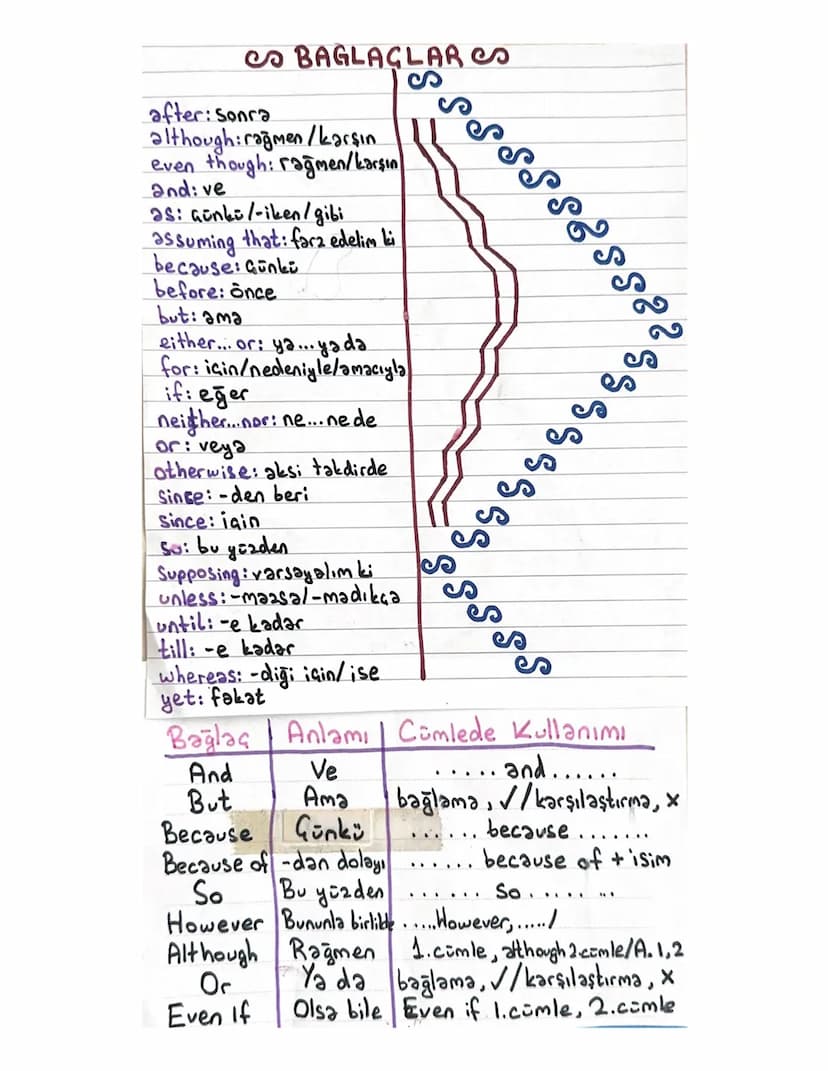 BAĞLAÇLAR
after: sonra
although: rağmen/karşın
even though: rağmen/karşın
and: ve
as: Çünkü/-iken/gibi
assuming that: farz edelim ki
because: Çünkü
before: önce
but: ama
either...or: ya...ya da
for: için/nedeniyle/amacıyla
if: eğer
neither...nor: ne...ne de
or: veya
otherwise: aksi takdirde
since: -den beri
since: için
so: bu yüzden
Supposing: varsayalım ki
unless: -mazsa/-madıkça
until: -e kadar
till: -e kadar
whereas: -diği için/ise
yet: fakat
Bağlaç | Anlamı | Cümlede Kullanımı
And Ve ..... and......
But Ama bağlama, ✓//karşılaştırma, x
Because Çünkü ...... because .......
Because of -dan dolayı ...... because of + isim
So Bu yüzden ...... So ........
However Bununla birlikte .....However,...../
Although Rağmen 1.cümle, although 2.cümle/A. 1,2
Or Ya da bağlama, ✓//karşılaştırma, x
Even If Olsa bile Even if 1.cümle, 2.cümle